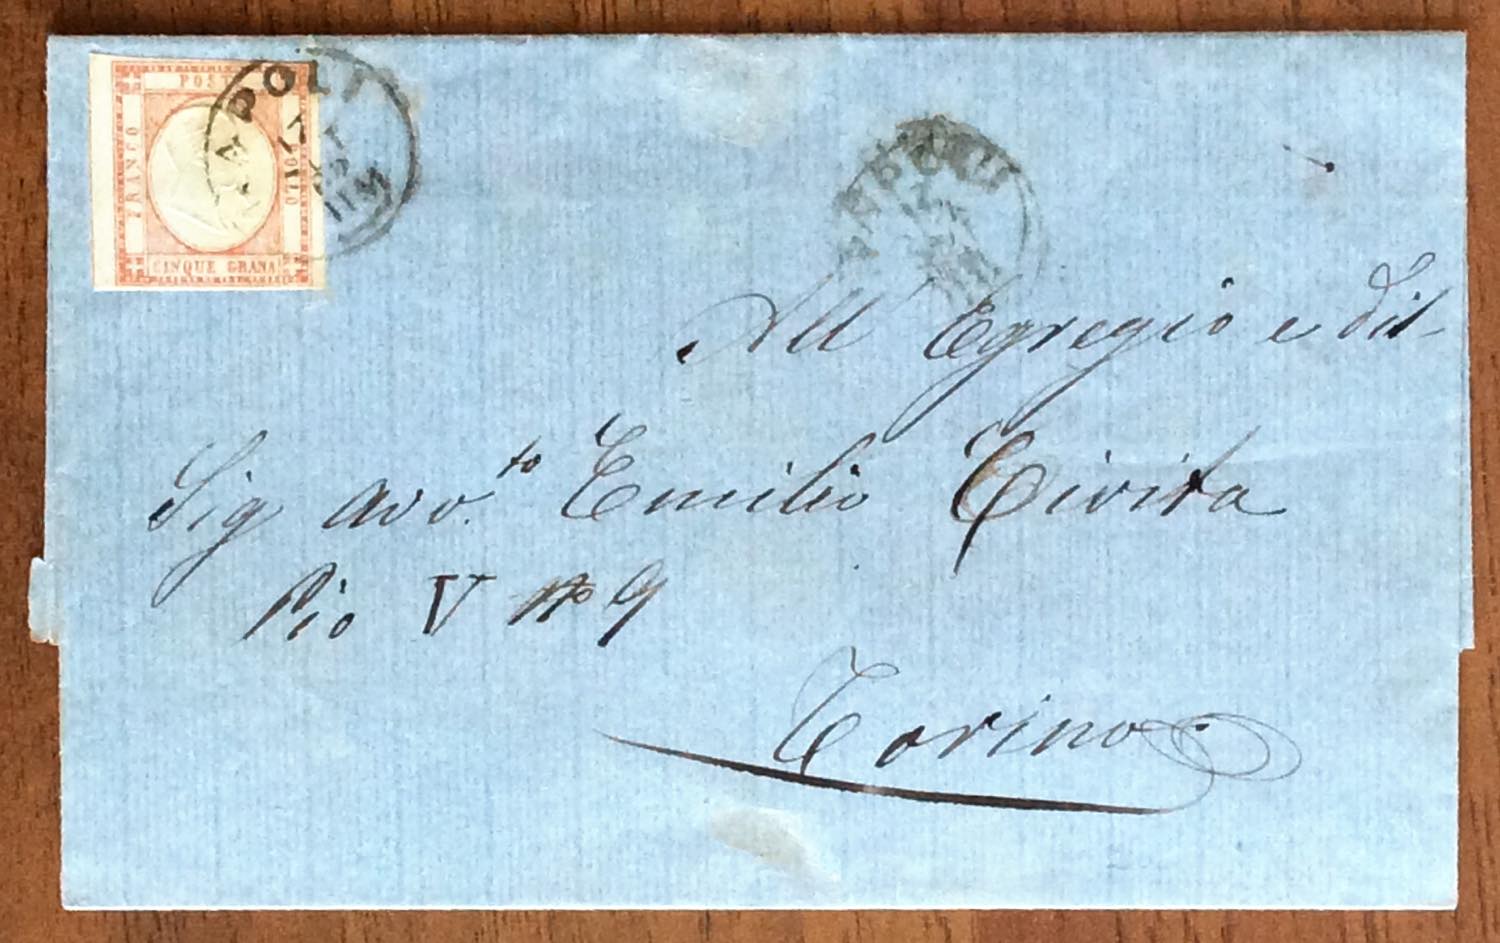 POST
FRANCO
BOLLO
CINQUE GRANA
NAPOLI
17
NAPOLI
All Egregio e Dil
Sig avv.to Emilio Civita
Pio V No 9
Torino